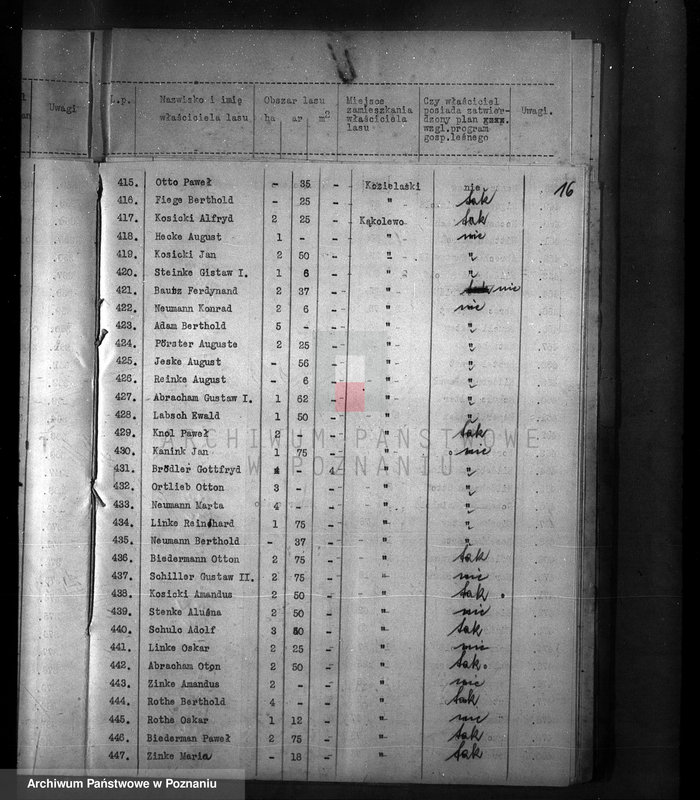 Uwagi
L.p. Nazwisko i imię właściciela lasu Obszar lasu ha ar m2 Miejsce zamieszkania właściciela lasu Czy właściciel posiada zatwierdzony plan wzgl.program gosp.leśnego Uwagi.
16
415. Otto Paweł - 35 - Kozielaski nie
416. Fiege Berthold - 25 - " tak
417. Kosicki Alfryd 2 25 - Kąkolewo tak
418. Hecke August 1 - - " nie
419. Kosicki Jan 2 50 - " "
420. Steinke Gistaw I. 1 6 - " "
421. Bautz Ferdynand 2 37 - " nie
422. Neumann Konrad 2 6 - " nie
423. Adam Berthold 5 - - " "
424. Pörster Auguste 2 25 - " "
425. Jeske August - 56 - " "
426. Reinke August - 6 - " "
427. Abracham Gustaw I. 1 62 - " "
428. Labsch Ewald 1 50 - " "
429. Knol Paweł 2 - - " tak
430. Kanink Jan 1 75 - " nie
431. Brödler Gottfryd - 4 " "
432. Ortlieb Otton 3 - - " "
433. Neumann Marta 4 - - " "
434. Linke Reinchard 1 75 - " "
435. Neumann Berthold - 37 - " "
436. Biedermann Otton 2 75 - " tak
437. Schiller Gustaw II. 2 75 - " nie
438. Kosicki Amandus 2 50 - " tak
439. Stenke 2 50 - " nie
440. Schulc Adolf 3 - " tak
441. Linke Oskar 2 25 - " nie
442. Abracham Oton 2 50 - " tak.
443. Zinke Amandus 2 - - " nie
444. Rothe Berthold 4 - - " tak
445. Rothe Oskar 1 12 - " nie
446. Biederman Paweł 2 75 - " tak
447. Zinke Maria - 18 - " tak
ARCHIWUM PAŃSTWOWE
W POZNANIU
Archiwum Państwowe w Poznaniu